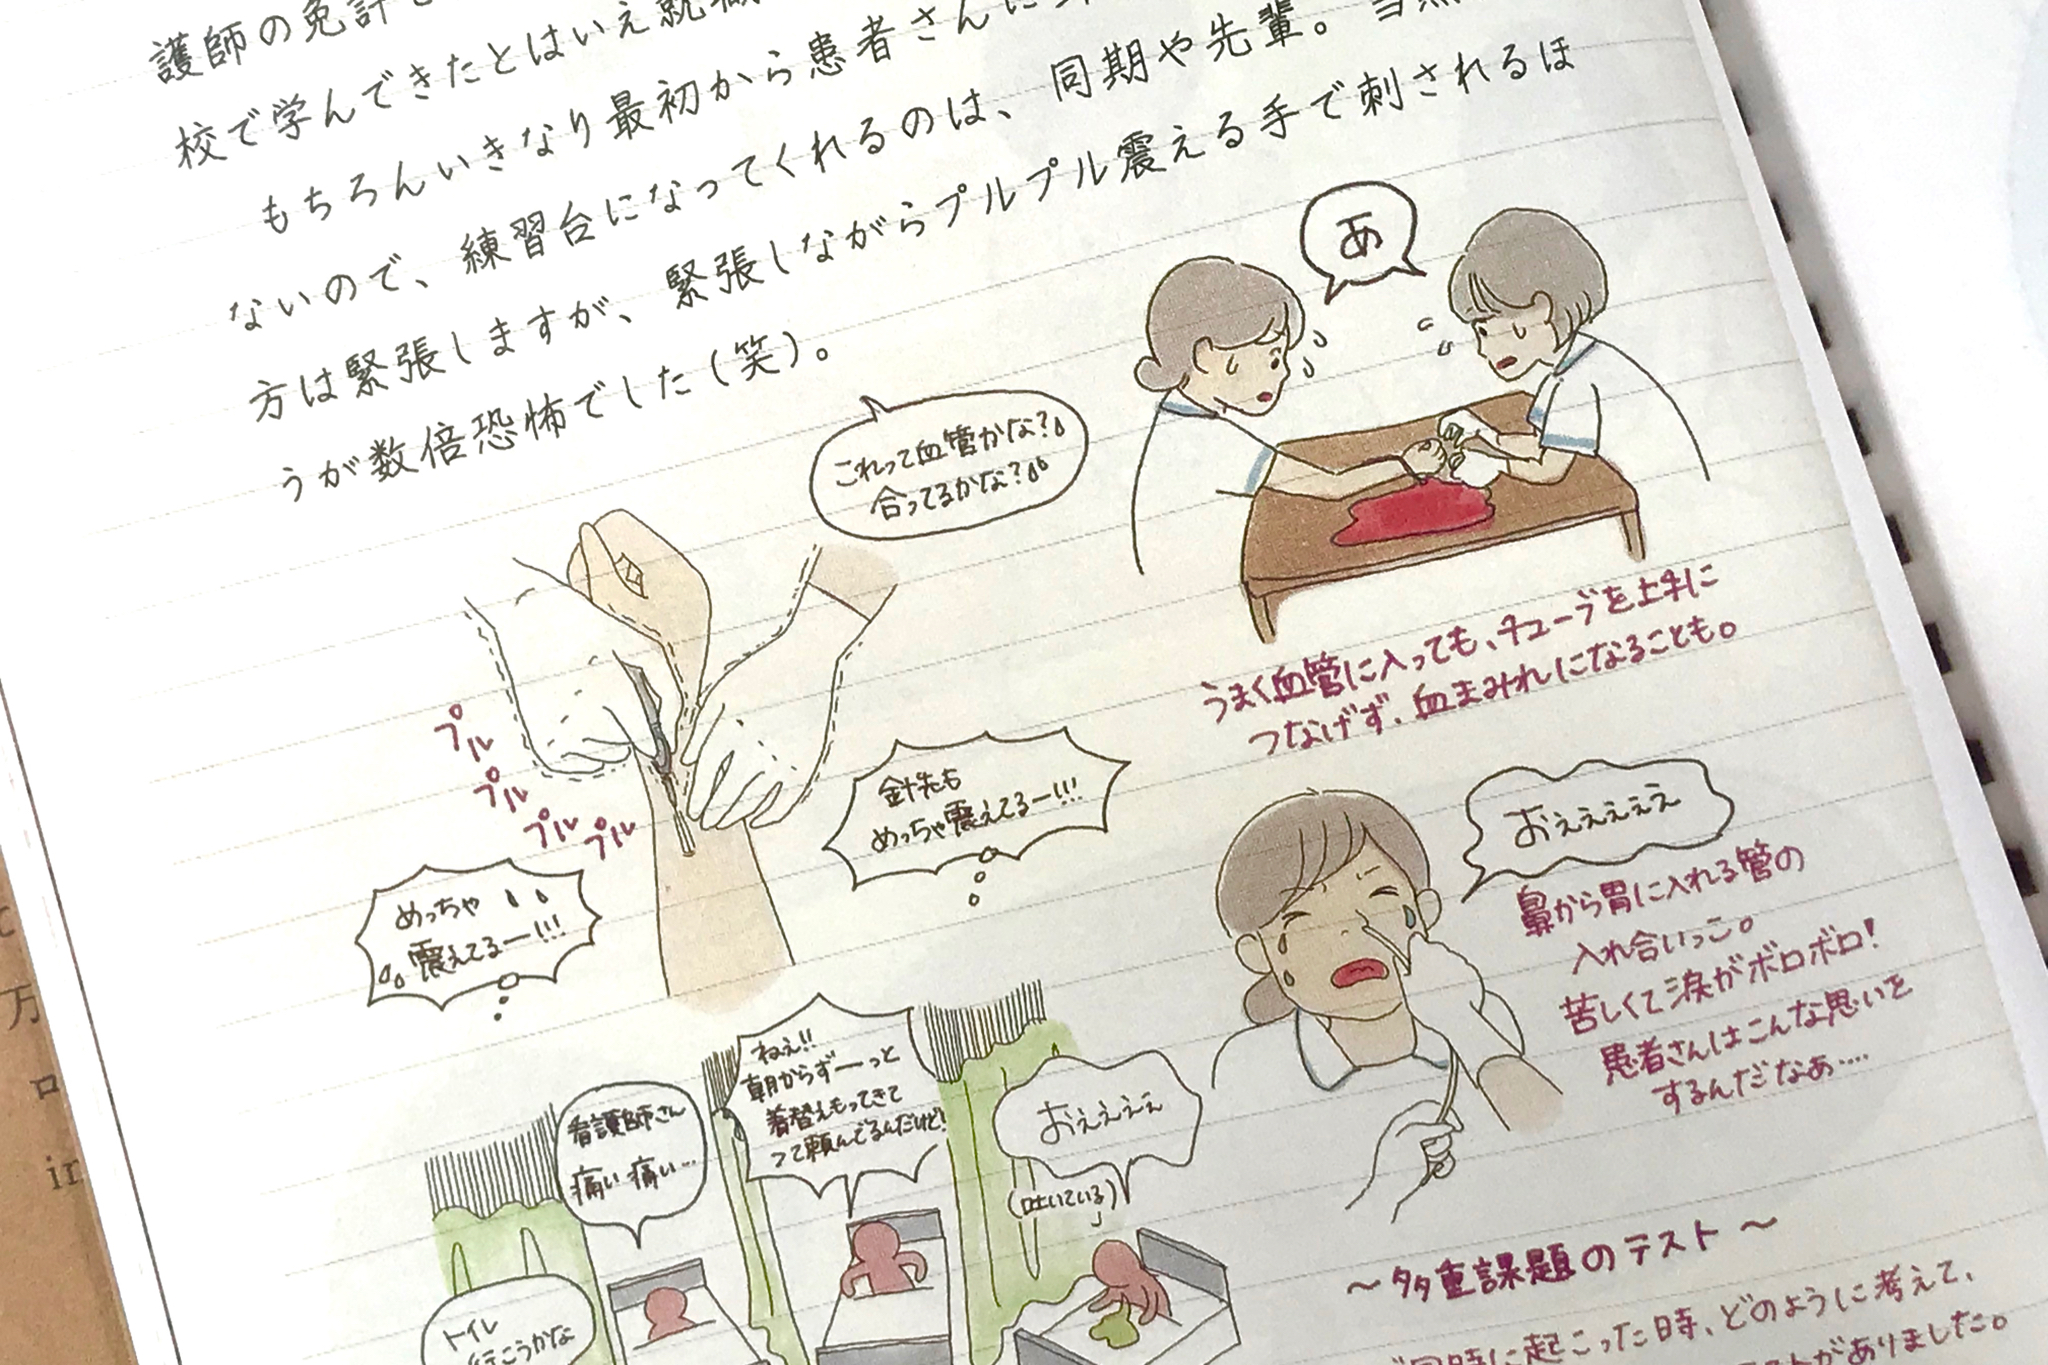 護師の免許
校で学んできたとはいえ就職
もちろんいきなり最初から患者さんに
ないので、練習台になってくれるのは、同期や先輩。当然
方は緊張しますが、緊張しながらプルプル震える手で刺されるほ
うが数倍恐怖でした(笑)。
あ
これって血管かな?
合ってるかな?
うまく血管に入っても、チューブを上手に
つなげず、血まみれになることも。
プル
プル
プル
プル
針先も
めっちゃ震えてるー!!!
めっちゃ
震えてるー!!!
おぇぇぇぇぇ
鼻から胃に入れる管の
入れ合いっこ。
苦しくて涙がボロボロ!
患者さんはこんな思いを
するんだなぁ……
看護師さん
痛い痛い…
ねぇ!!
朝からずーーっと
着替えもってきて
って頼んでるんだけど!
おぇぇぇぇ
(吐いている)
トイレ
行こうかな
〜多重課題のテスト〜
同時に起こった時、どのように考えて、
がありました。
in